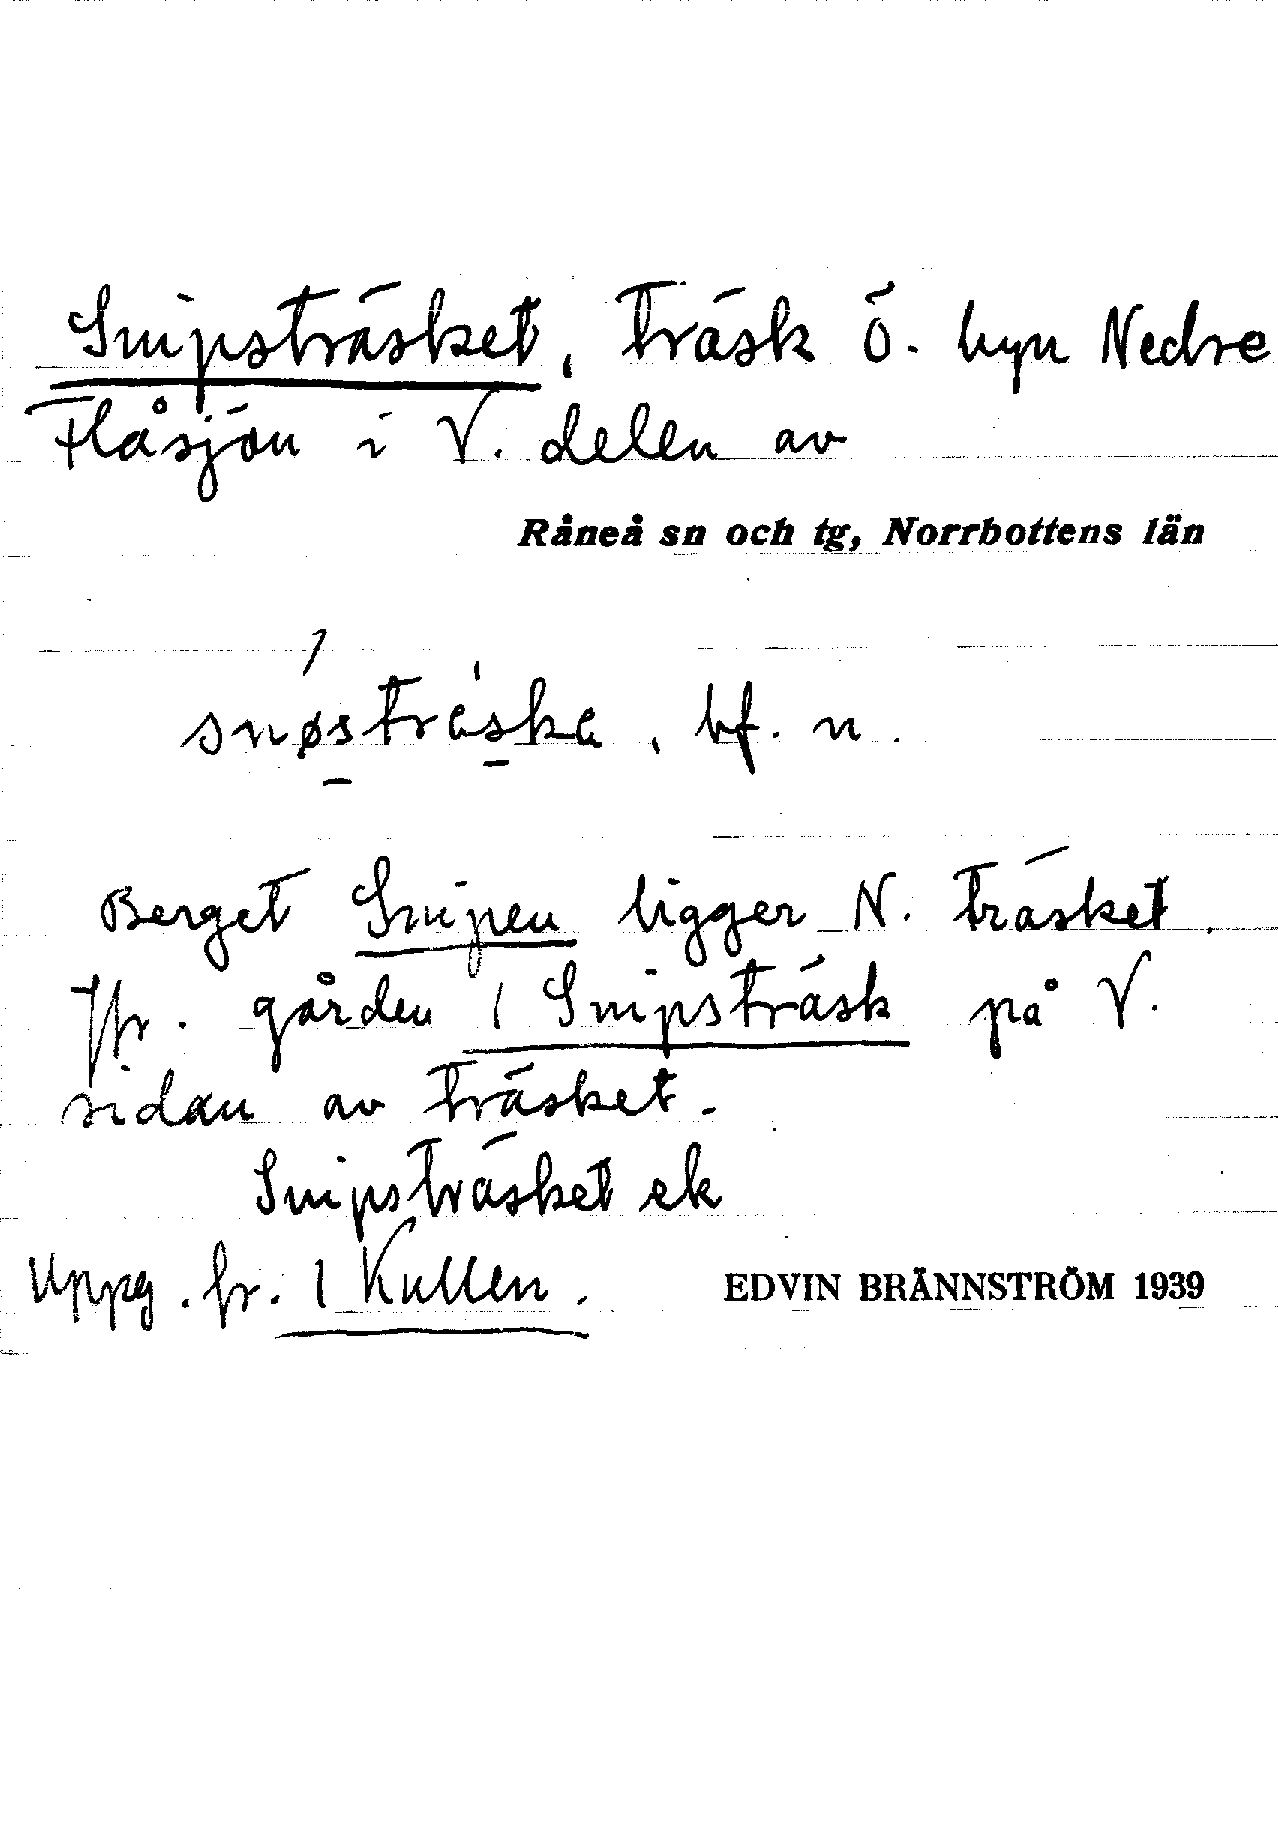 Snipsträsket, träsk Ö. byn Nedre
Flåsjön i V. delen av
Råneå sn och tg, Norrbottens län
snøstrȧska, bf. n.
Berget Snipen ligger N. träsket.
Jfr. gården 1 Snipsträsk på V.
sidan av träsket.
Snipsträsket ek
Uppg. fr. 1 Kullen.
EDVIN BRÄNNSTRÖM 1939